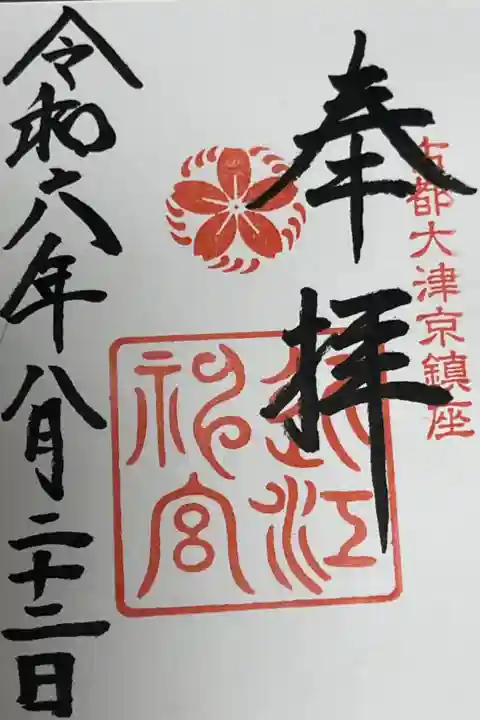 古都大津京鎮座
奉拝
近江神宮
令和六年八月二十二日